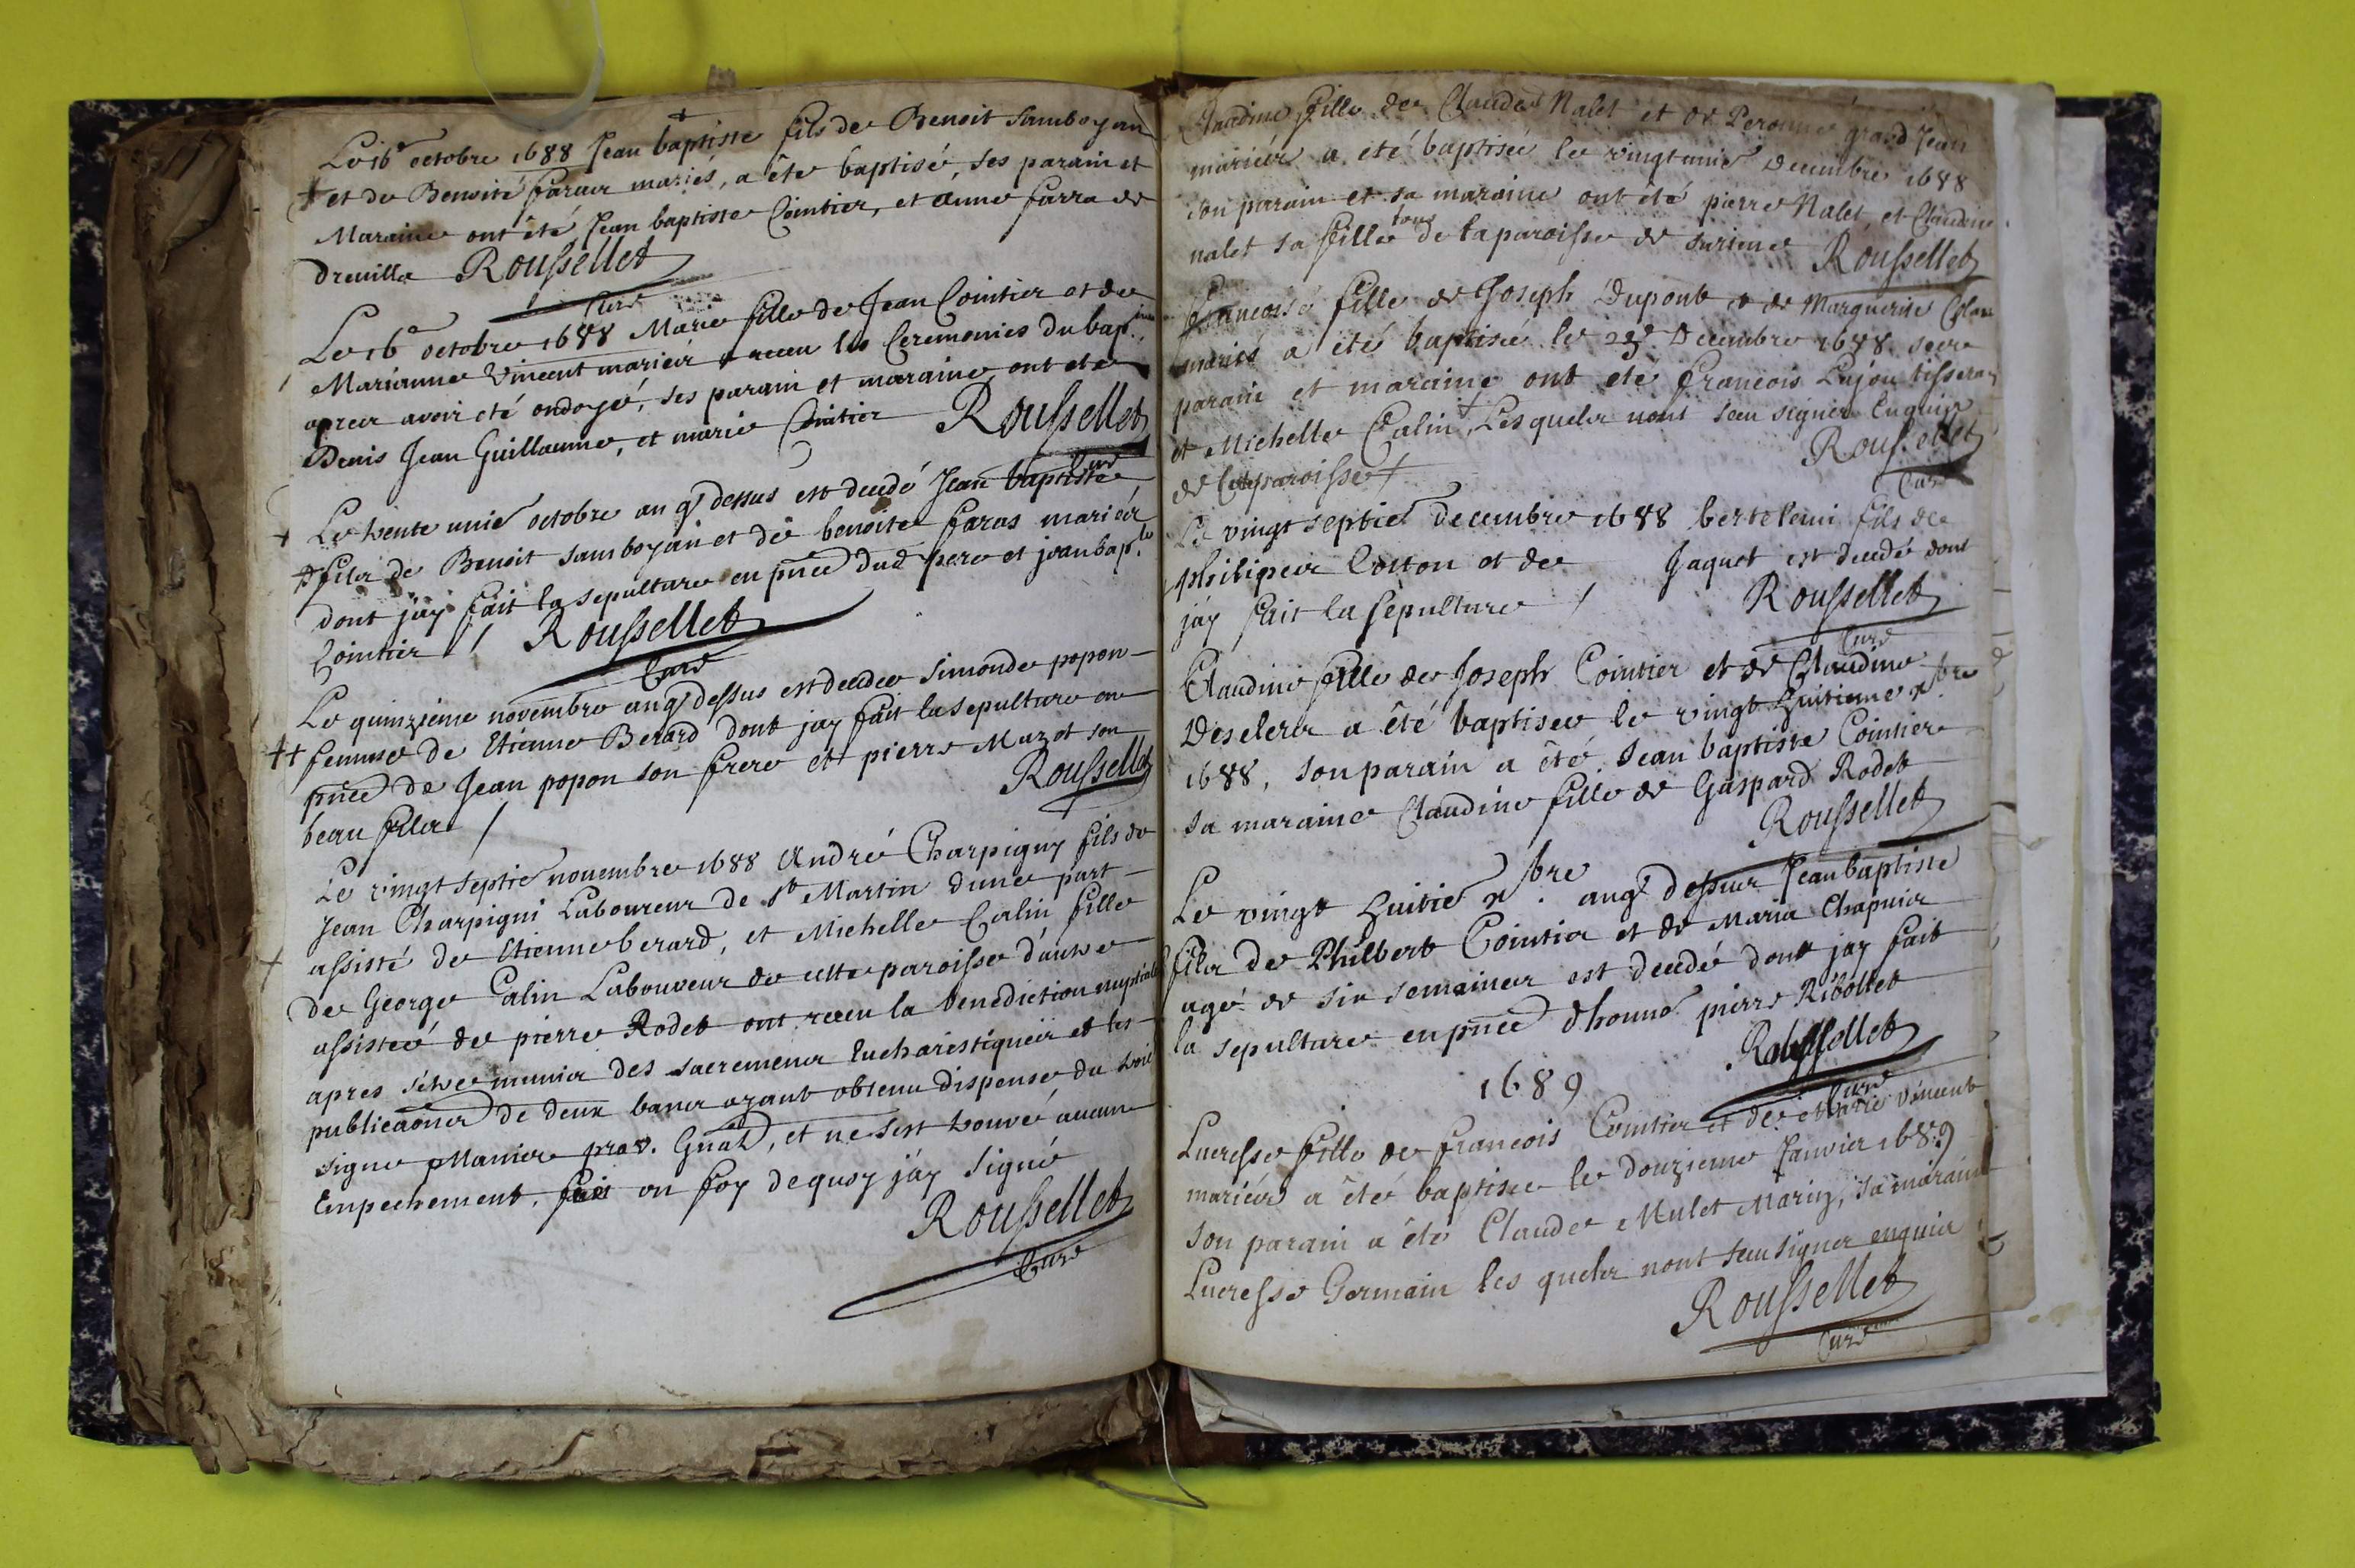 Le 16e octobre 1688 Jean baptiste fils de Benoit Samboyan
et de Benoite faras mariés, a été baptisé, ses parain et
Maraine ont été Jean baptiste Cointier, et Anne farra de
dreuille Roussellet
Curé
Le 16e octobre 1688 Marie fille de Jean Cointier et de
Marianne Vincent mariés a receu les Ceremonies du bap.me
apres avoir été ondoyé, ses parain et maraine ont eté
Denis Jean Guillaume, et marie Cointier Roussellet
Curé
Le trente unie octobre an q dessus est decedé Jean baptiste
fils de Benoit Samboyan et de benoite faras mariés
dont j'ay fait la sepulture en pñce dud pere et jean bap.te
Cointier / Roussellet
Curé
Le quinzieme novembre an q dessus est decedee Simonde popon
femme de Etienne Berard dont jay fait la sepulture en
pñce de Jean popon son frere et pierre Muzot son
beau fils / Roussellet
Le vingt septie novembre 1688 André Charpigny fils de
Jean Charpigni Laboureur de st Martin dune part
assisté de Etienne berard, et Michelle Calin fille
de George Calin Laboureur de cette paroisse d'autre
assistée de pierre Rodet ont receu la benediction nuptiale
apres s'etre munis des sacremens Eucharistiques et les
publicãons de deux bans ayant obtenu dispense du troi
signe Manier prov. Gñal, et ne sest trouvé aucun
Empechement, en foy de quoy j'ay signé
Roussellet
Curé
Claudine fille de Claude Nalet et de Peronne grand Jean
mariés a été baptisée le vingtunie Decembre 1688
son parain et sa maraine ont été pierre Nalet et Claudine
nalet sa fille tous de la paroisse de Roussellet
francoise fille de Joseph Dupont & de Marguerite
mariés a été baptisée le 23e Decembre 1688
parain et maraine ont été francois Lujon tisseran
et Michelle Calin, Lesquels n'ont sceu signer Enquis
de Cette paroisse Roussellet
Curé
Le vingt septie decembre 1688 bertelemi fils de
philipes Coston et de Jaquet est decedé dont
jáy fait la sepulture / Roussellet
Curé
Claudine fille de Joseph Cointier et de Claudine
Deselers a été baptisee le vingt huitieme xbre
1688, son parain a été Jean baptiste Cointier
sa maraine Claudine fille de Gaspard Rodet
Roussellet
Le vingt huitie xbre an q dessus Jean baptiste
fils de Philbert Cointier et de Maria Chapuis
agé de six semaines est decedé dont jay fait
la sepulture en pñce dhonne pierre Ribollet
Roussellet
Curé
1689
Lucresse fille de francois Cointier et de Marie Vincent
mariés a été baptisee le douzieme Janvier 1689
son parain a été Claude Mulet Marin, sa maraine
Lucresse Germain les quels n'ont sceu signer enquis
Roussellet
Curé